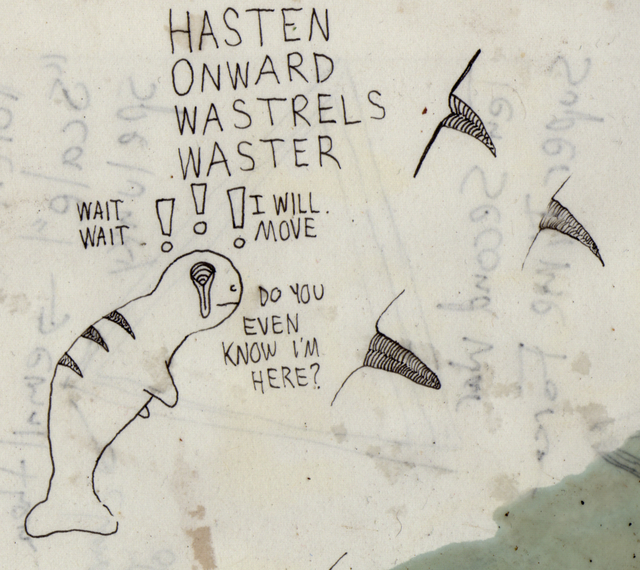 HASTEN
ONWARD
WASTRELS
WASTER
WAIT
WAIT
!!!
I WILL
MOVE
DO YOU
EVEN
KNOW I'M
HERE?